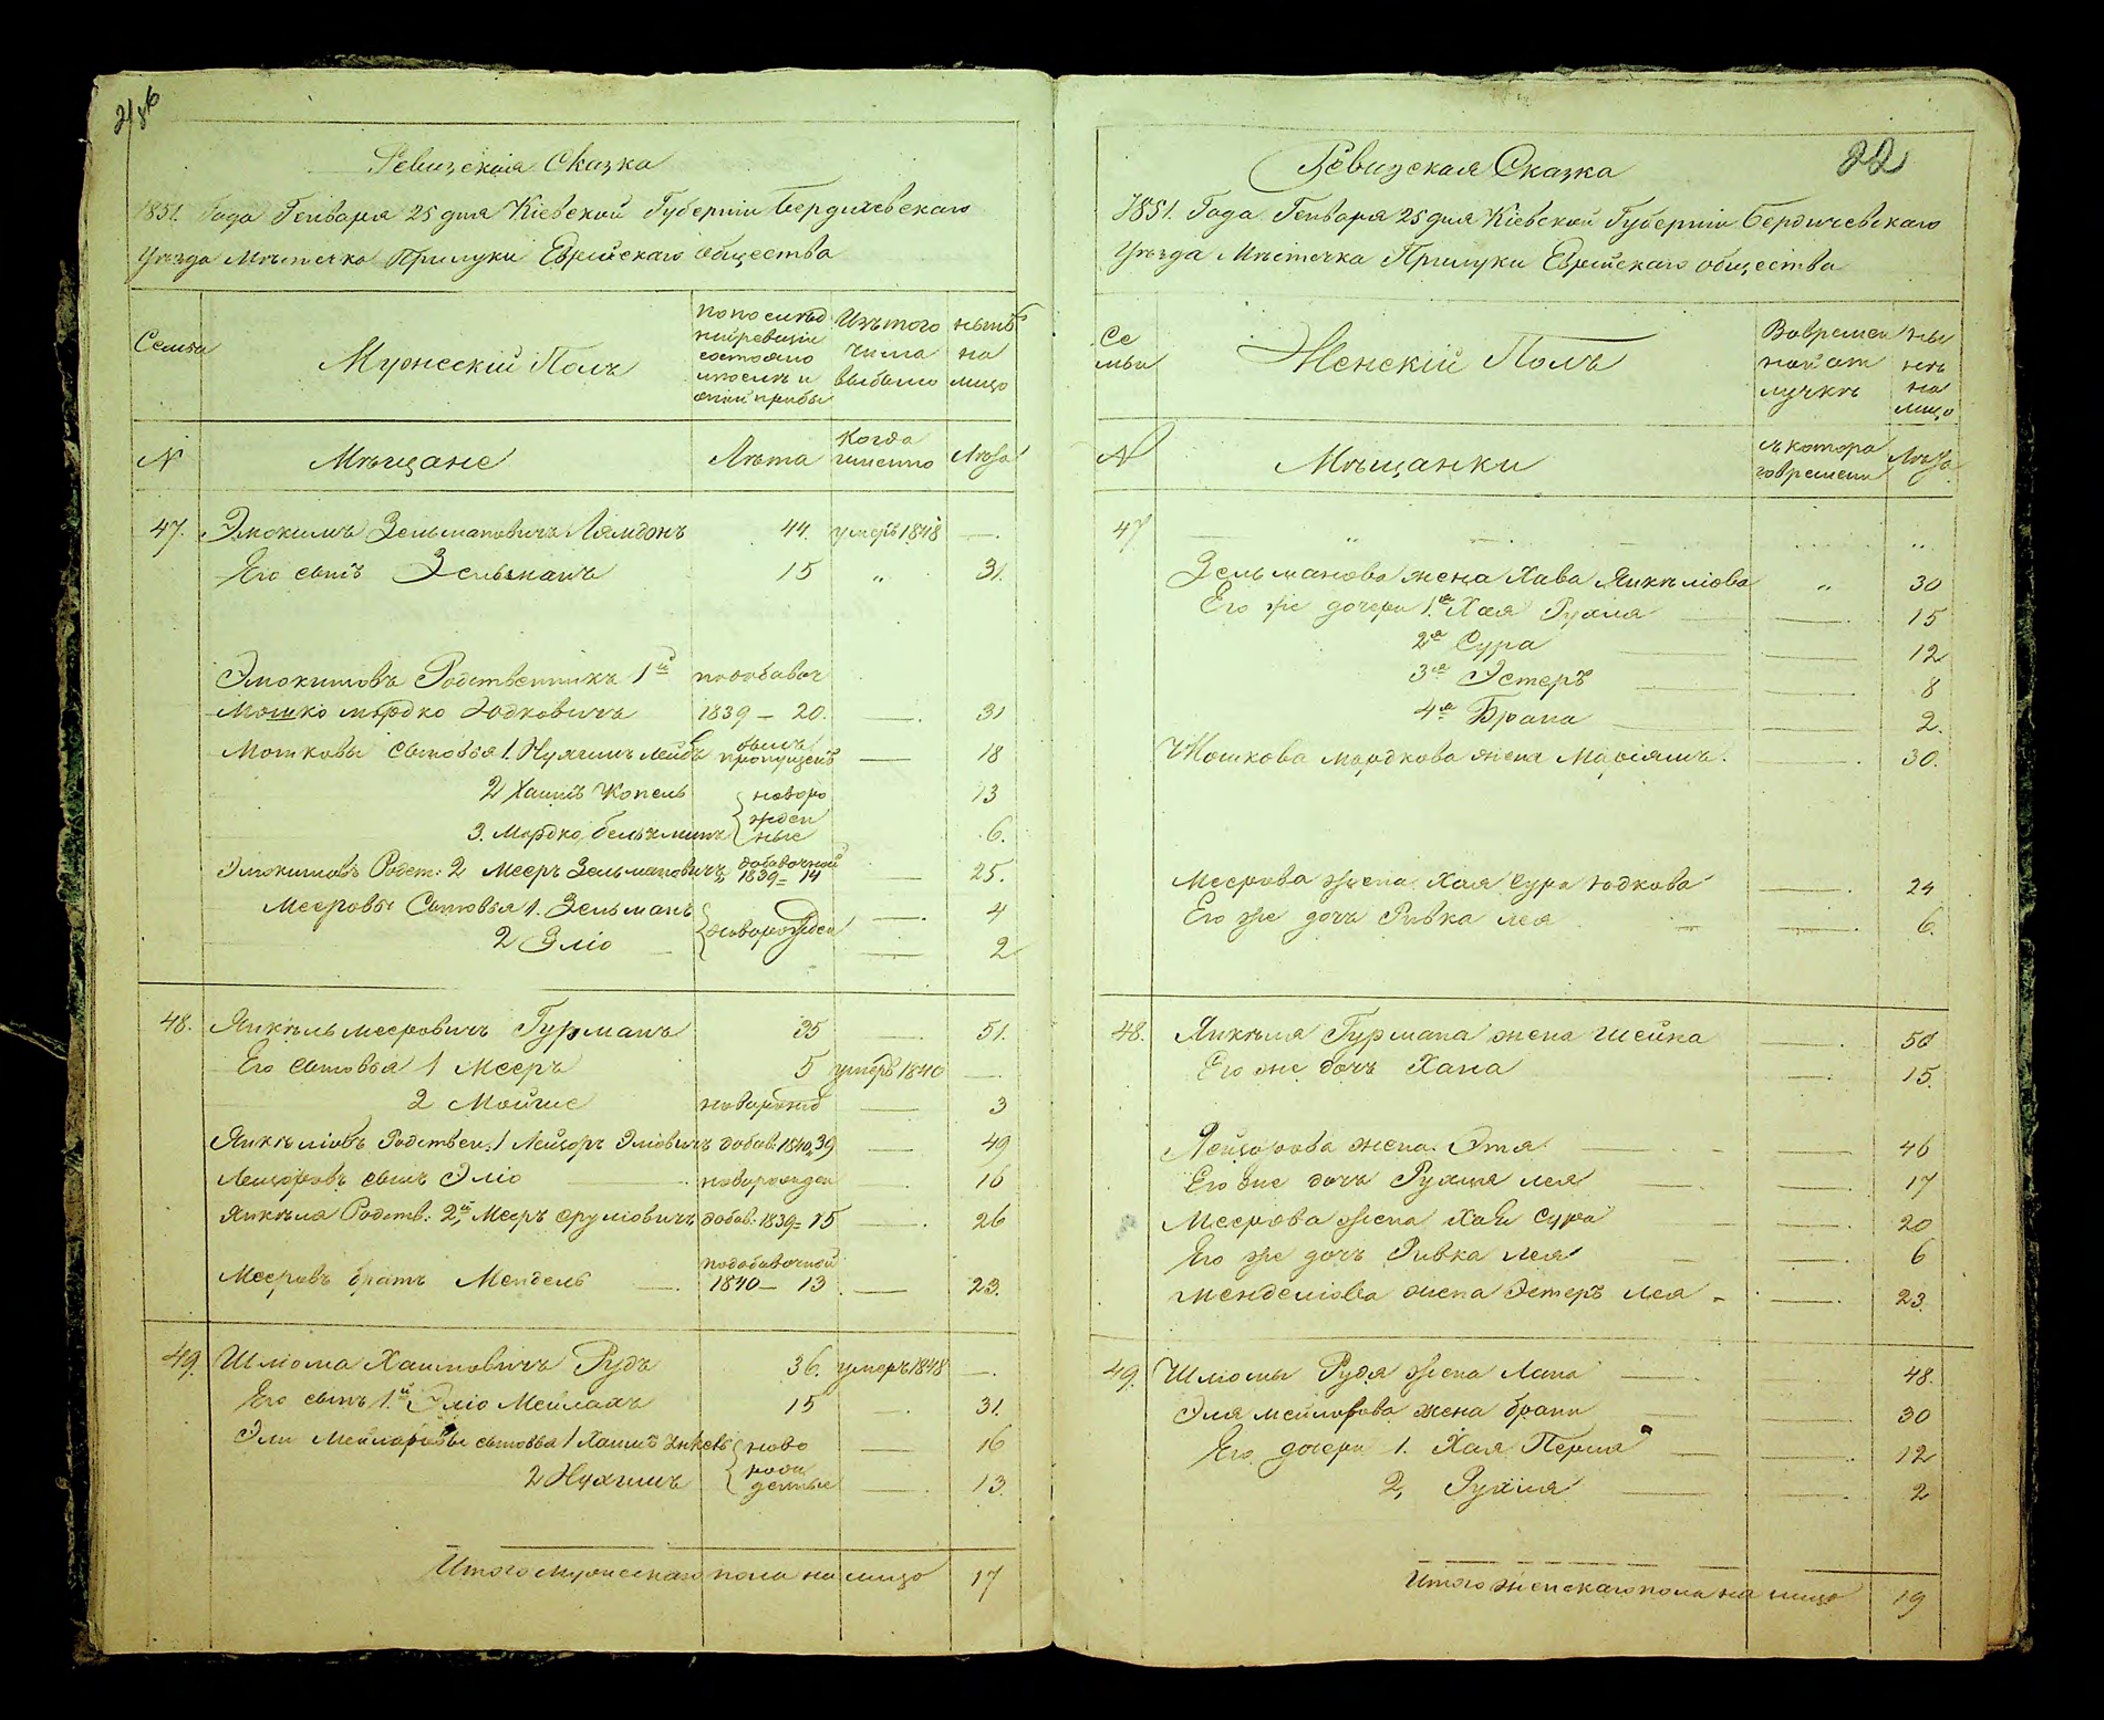 Ревизская Сказка
1851. Года Генваря 25 дня Кіевской Губерніи Бердичевскаго
Уѣзда Мѣстечка Прилуки Еврейскаго общества
Семьи
Мужескій Полъ
По послѣд
ней ревизіи
состояло
и после
оной прибы
Изъ того
числа
выбыло
нынѣ
на
лицо
N
Мѣщане
Лѣта
Когда
именно
Лѣта
47. Зельмановичъ Лямдонъ 44. умеръ 1848 —
Его сынъ Зельманъ 15 „ 31.
Родственникъ 1й по добавоч
Мошко Мордко Юдковичъ 1839 – 20. — 31
Мошковы сыновья 1. Нухимъ Лейбъ былъ пропущенъ — 18
2 Хаимъ Копель 13
3. Мордко 6.
{ новоро
жден
ные
Родст: 2 Мееръ Зельмановичъ добавочной 1839 = 14 — 25.
Мееровы Сыновья 1. Зельманъ { новорожден — 4
2 Эліо — 2
48. Янкель Мееровичъ Гурманъ 35 — 51.
Его сыновья 1 Мееръ 5 умеръ 1840 —
2 Мойше новорожд — 3
Янкеліовъ Родствен: 1 Лейзоръ Эліовичъ добав: 1840 39 — 49
Лейзоровъ сынъ Эліо — новорожден — 16
Янкеля Родств: 2й Мееръ Сруліовичъ добав: 1839 = 15 — 26
по добавочной
Мееровъ братъ Мендель — 1840 – 13. — 23.
49. Шліома Хаимовичъ Рудъ 36. умеръ 1848 —
Его сынъ 1й Эліо Мейлахъ 15 — 31.
сыновья 1 Хаимъ { ново — 16
2 Нухимъ рож
денные — 13.
Итого мужескаго пола на лицо 17
22
Ревизская Сказка
1851. Года Генваря 25 дня Кіевской Губерніи Бердичевскаго
Уѣзда Мѣстечка Прилуки Еврейскаго общества
Се
мьи
Женскій Полъ
Во времен
ной от
лучкѣ
ны
нѣ
на
лицо
N
Мѣщанки
съ котора
го времени
Лѣта
47
Зельманова жена Хава Янкеліова „ 30
Его же дочери 1я Хая Рухля — 15
2я Сура — 12
3я Эстеръ — 8
4я Брана — 2.
Мошкова Мордкова жена Маріямъ. — 30.
Меерова жена Хая Сура Юдкова — 24
Его же дочь Ривка Лея — 6.
48. Янкеля Гурмана жена Шейна — 50
Его же дочь Хана — 15.
Лейзорова жена Этя — 46
Его же дочь Рухля Лея — 17
Меерова жена Сура — 20
Его же дочь Ривка Лея — 6
Менделіова жена Эстеръ Лея — 23.
49. Шліомы Рудя жена — 48.
жена — 30
Его дочери 1. Хая Перля — 12
2, Рухля — 2
Итого женскаго пола на лицо 19